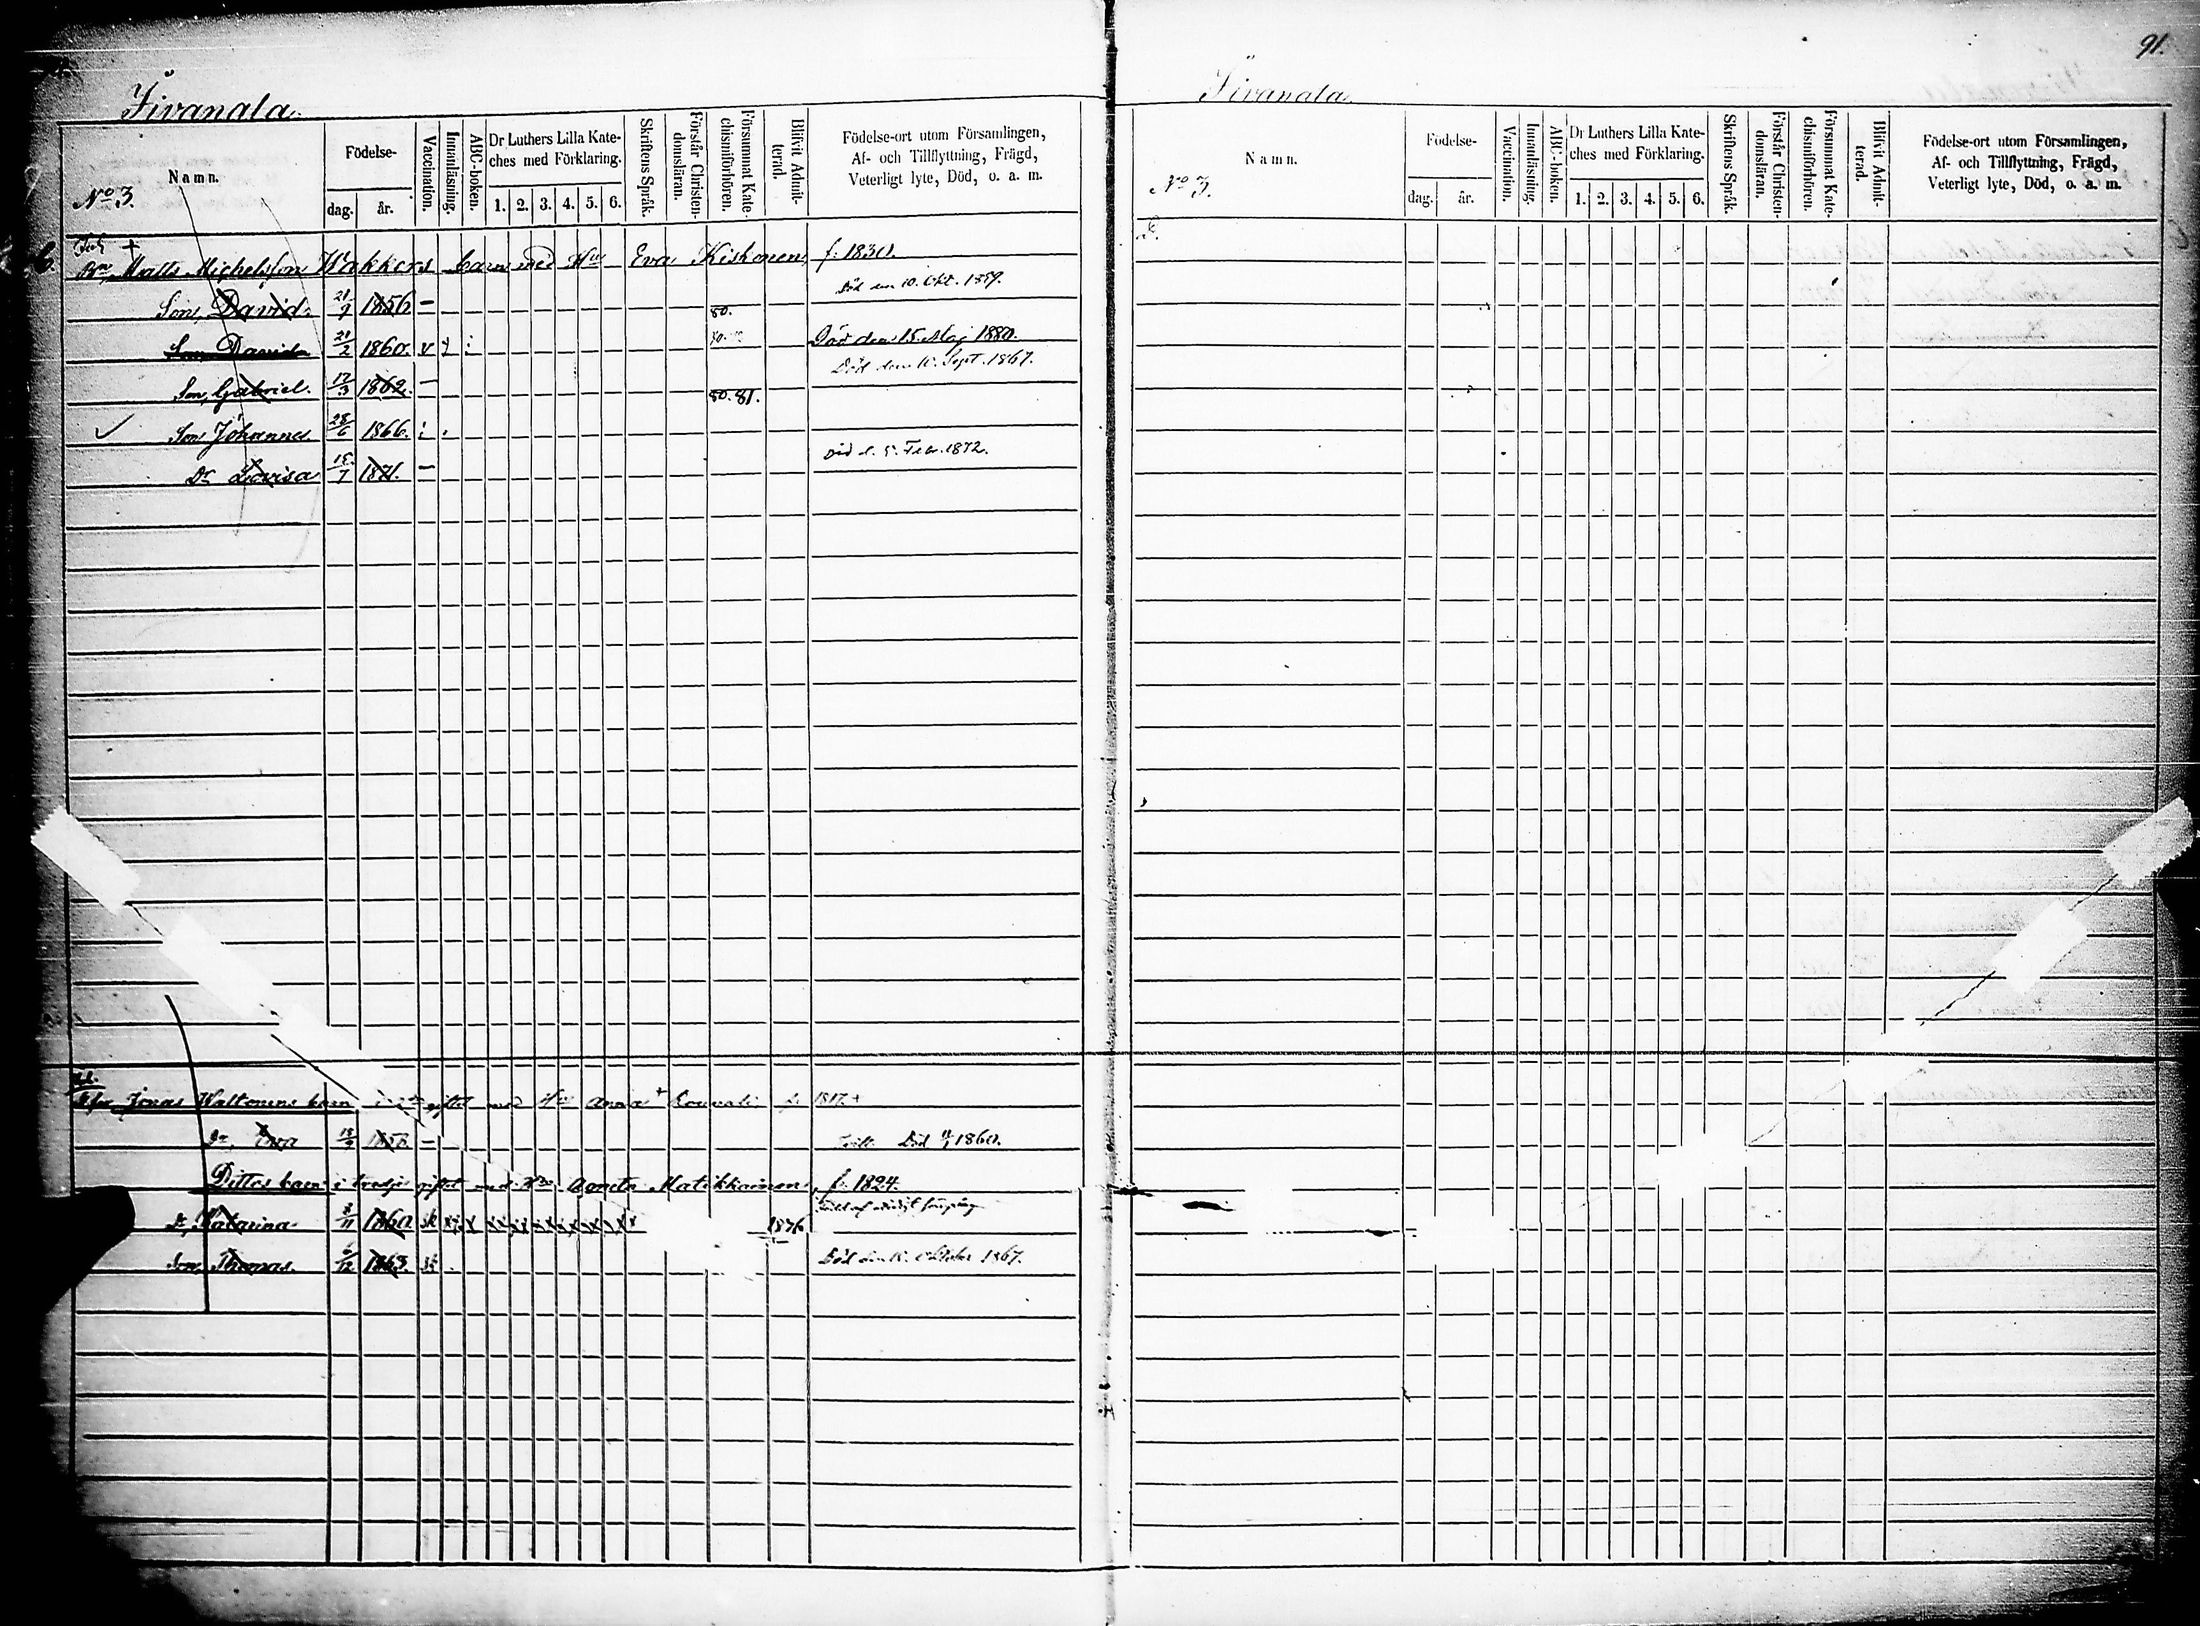 91.
Jivanala
Namn.
No 3.
Födelse-
dag.
år.
Vaccination.
Innanläsning.
ABC-boken.
Dr Luthers Lilla Kate-
ches med Förklaring.
1. 2. 3. 4. 5. 6.
Skriftens Språk.
Förstår Christen-
domsläran.
Försummat Kate-
chismiförhören.
Blifvit Admit-
terad.
Födelse-ort utom Församlingen,
Af- och Tillflyttning, Frägd,
Veterligt lyte, Död, o. a. m.
Matts Michelsson Wakkers barn med Hu Eva Kiskonen f. 1830.
Son, David 21/9 1856 – Död den 10. Okt. 1859.
80.
Son David 21/2 1860. v Död den 15. Maj 1880.
Son, Gabriel. 17/3 1862. – Död den 10. Sept. 1867.
80. 81.
Son Johannes 28/6 1866.
Dr Lovisa 15/7 1871. – Död d. 5. Febr. 1872.
Jonas Waltonens barn giftet med Hu Anna f. 1817.
Dr, Eva 13/9 – Död 1860.
Dittos barn i tredje giftet med Hu Agneta Matikkainen, f. 1824.
Dr, Katarina 8/11 1860 1876
Son, Thomas. 6/12 1863. Död den Oktober 1867.
Jivanala
Namn.
No 3.
Födelse-
dag.
år.
Vaccination.
Innanläsning.
ABC-boken.
Dr Luthers Lilla Kate-
ches med Förklaring.
1. 2. 3. 4. 5. 6.
Skriftens Språk.
Förstår Christen-
domsläran.
Försummat Kate-
chismiförhören.
Blifvit Admit-
terad.
Födelse-ort utom Församlingen,
Af- och Tillflyttning, Frägd,
Veterligt lyte, Död, o. a. m.